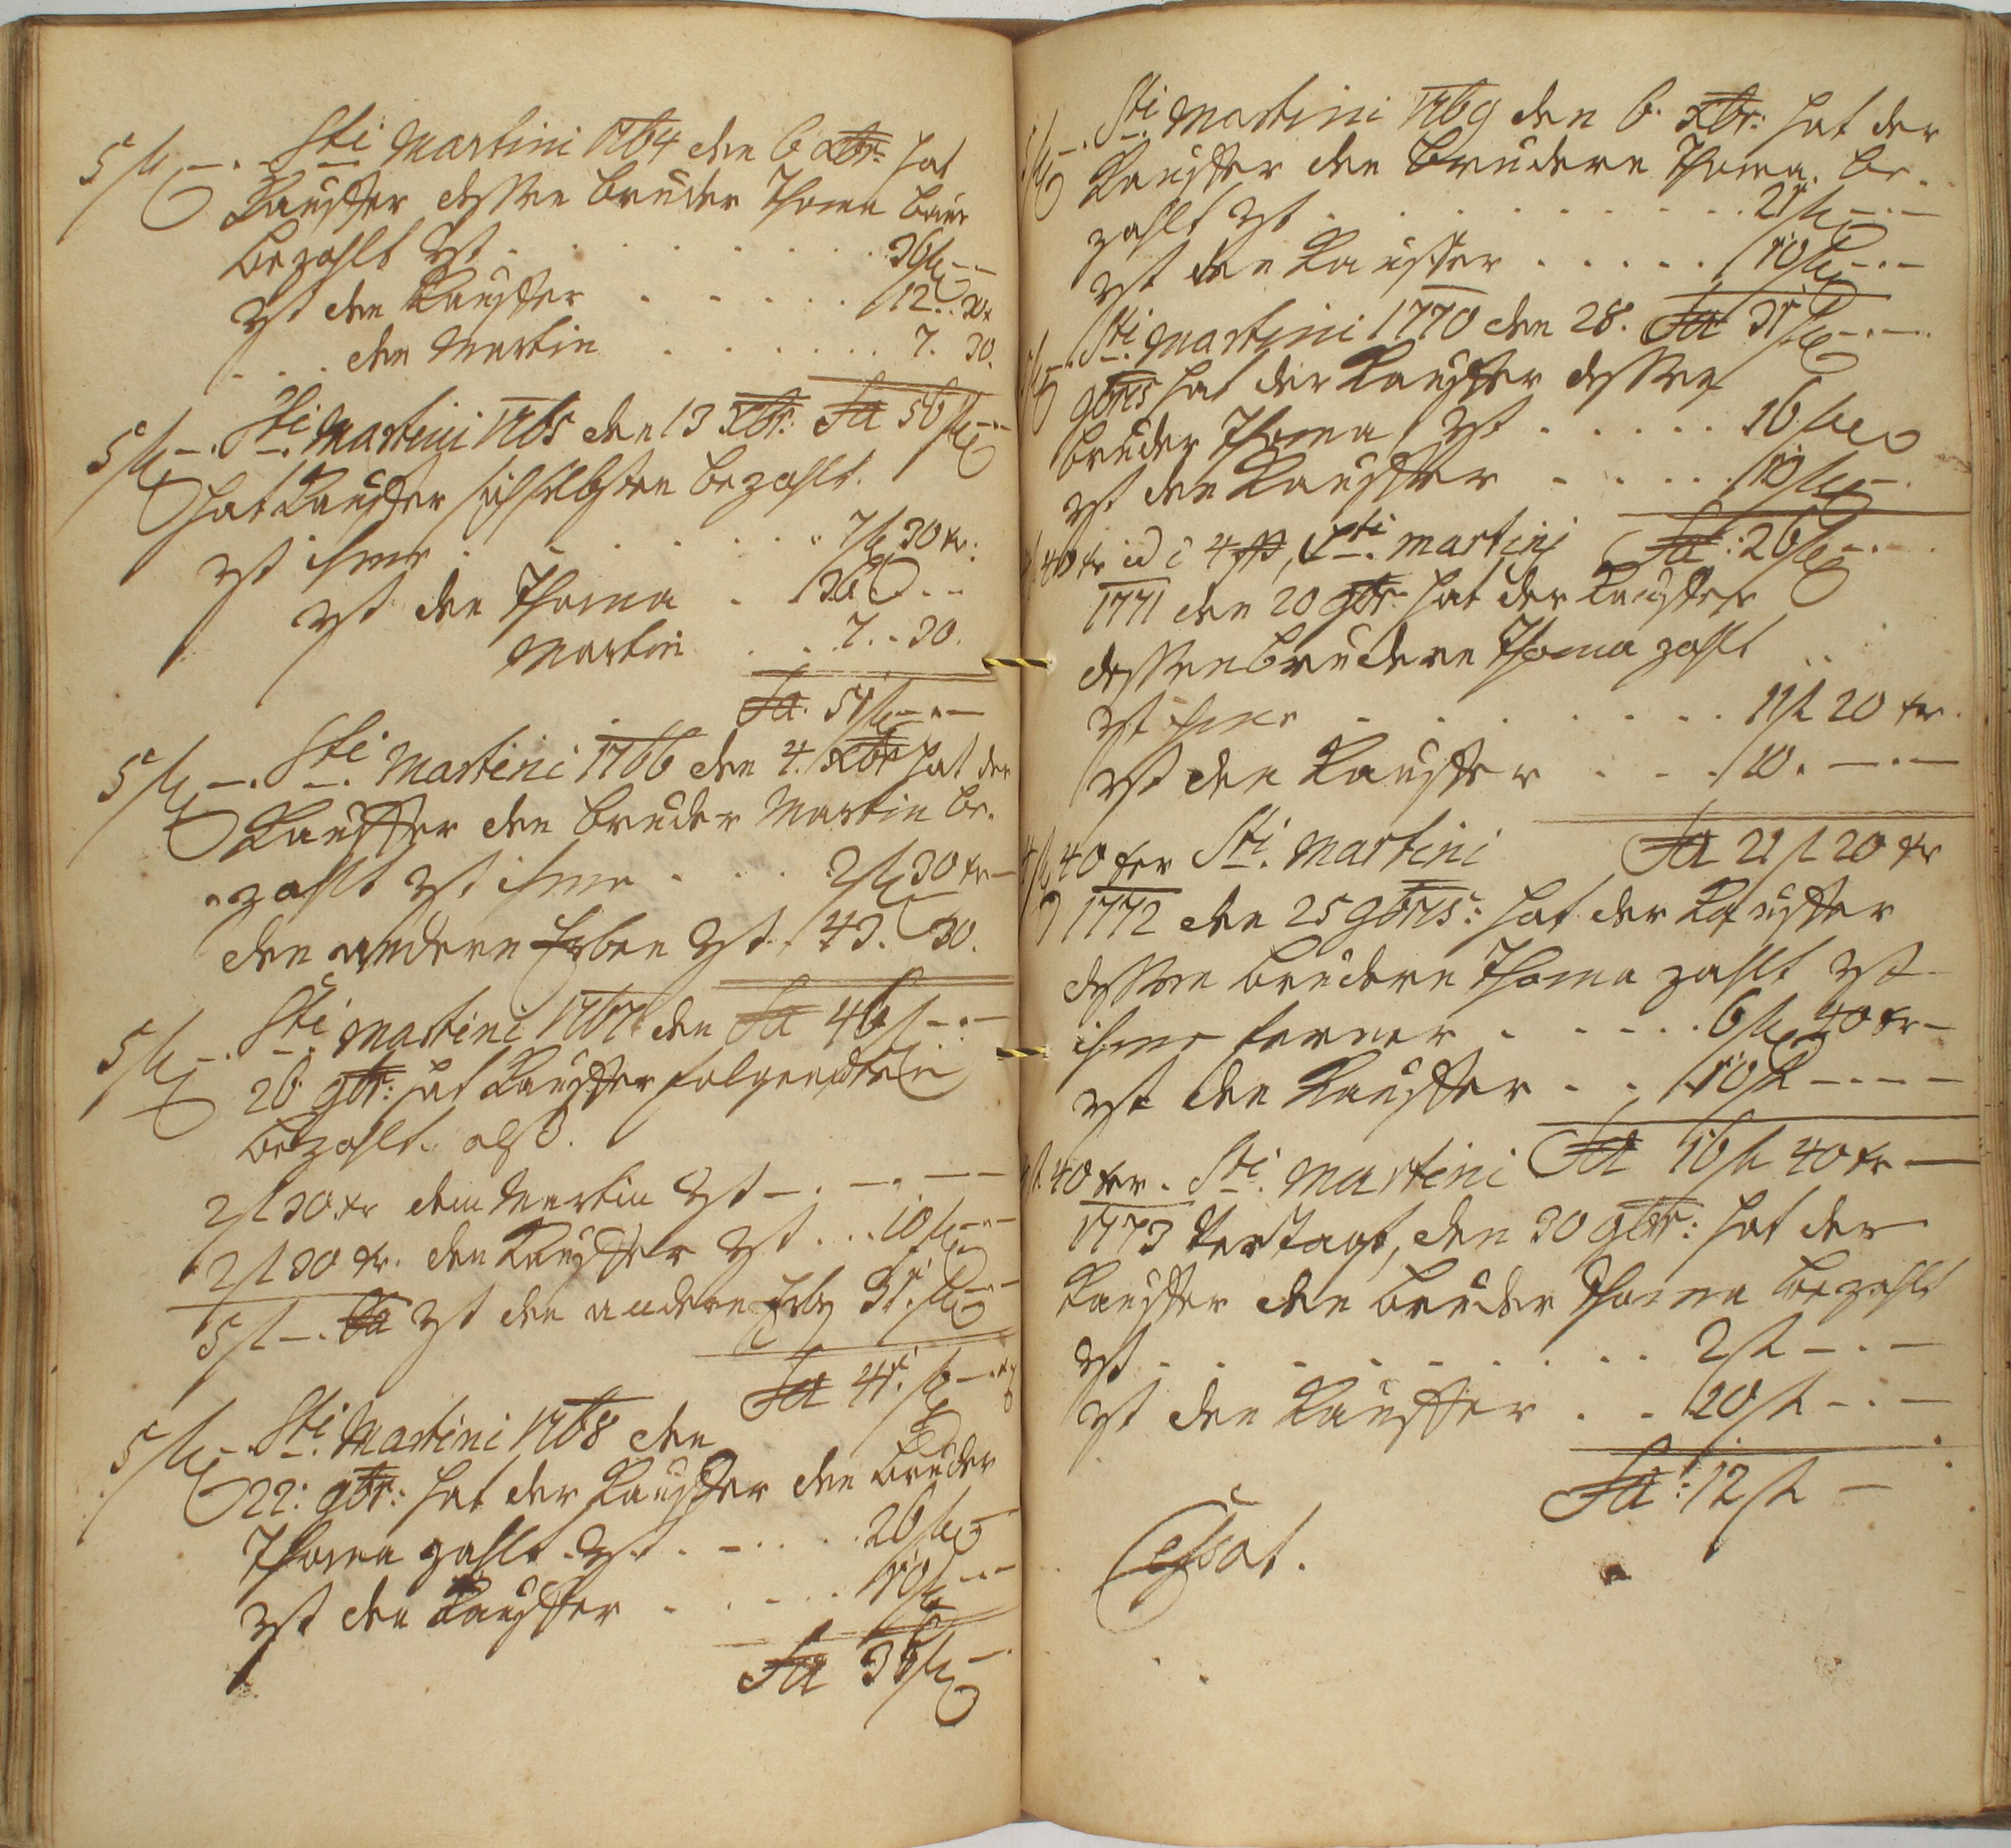 5 fl —. Sti Martini 1764 den 6 Xbr: hat
Kauffer dessen bruder Thoma baar
bezahlt rst . . . . . . 36 fl —
rst den Kauffer . . . . . 12 . 30
. . . den Martin . . . . . . 7. 30.
5 fl —. Sti. Martini 1765 den 13 Xbr: Sa 56 fl —
hat Kauffer sich selbsten bezahlt.
rst ihme . . . . . . 7 fl 30 kr:
rst den Thoma . 36 . —
Martin . . . 7. - 30.
Sa. 51 fl — . —
5 fl —. Sti. Martini 1766 den 4. Xbr hat der
Kauffer den bruder Martin be-
zahlt rst ihme . . . 2 fl 30 kr —
den andern Erben rst . 43. 30.
5 fl —. Sti Martini 1767. den Sa 46 fl — . —
26 9br: hat Kauffer folgenden
bezahlt. alß.
2 fl 30 kr dem Martin rst — . — . —
2 fl 30 kr. den Kauffer rst . . . 10 fl —
5 fl —. Sa rst den andern Erben 31. fl —
Sa 41. fl —
5 fl —. Sti. Martini 1768 den
22: 9br: hat der Kauffer den bruder
Thoma zahlt rst . — . . . 26 fl —
rst den Kauffer . . . . . 10 fl —
Sa 36 fl —
—. Sti. Martini 1769 den 6. Xbr: hat der
Kauffer den brudern Thoma be-
zahlt rst . . . . . . . . . 21 fl — . —
rst den Kauffer . . . . . 10 fl — . —
—. Sti. Martini 1770 den 28. Sa 31 fl — . —
9bris hat der Kauffer dessen
bruder Thoma rst . . . . . 16 fl
rst den Kauffer . . . . . 10 fl — .
40 kr Sti. Martini Sa: 26 fl — . —
1771 den 20 9br: hat der Kauffer
dessen brudern Thoma zahlt
rst ihme . . . . . . . 11 fl 20 kr.
rst den Kauffer . . . 10. — . —
40 kr Sti. Martini Sa 21 fl 20 kr
1772 den 25 9bris: hat der Kauffer
dessen brudern Thoma zahlt rst
ihme ferner . . . . . 6 fl 40 kr —
rst den Kauffer . . . 10 fl — . — . —
40 kr. Sti. Martini Sa 16 fl 40 kr —
1773 vertagt, den 30 9br: hat der
Kauffer den bruder Thoma bezahlt
rst . . . . . . . . . 2 fl — . —
rst den Kauffer . . . 10 fl — . —
Sa: 12 fl —
Cessat.